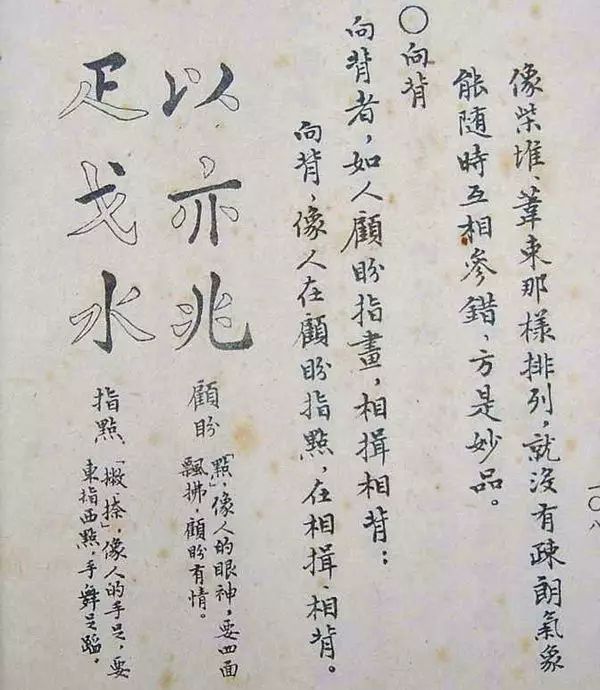 像柴堆、葦束那樣排列，就沒有疎朗氣象
能隨時互相參錯，方是妙品。
〇向背
向背者，如人顧盼指畫，相揖相背：
向背，像人在顧盼指點，在相揖、相背。
以亦兆
顧盼
「點」，像人的眼神，要四面
飄拂，顧盼有情。
疋戈水
指點
「撇、捺」，像人的手足，要
東指西點，手舞足蹈，
一〇八